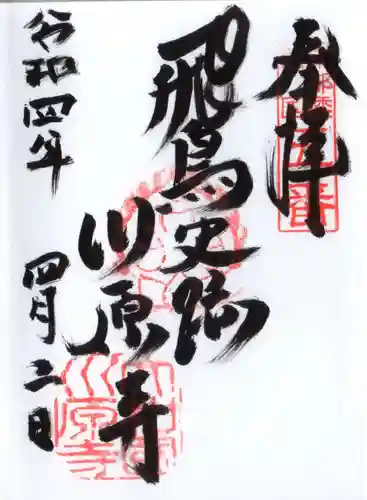 奉拝
飛鳥史跡
川原寺
令和四年
四月二日